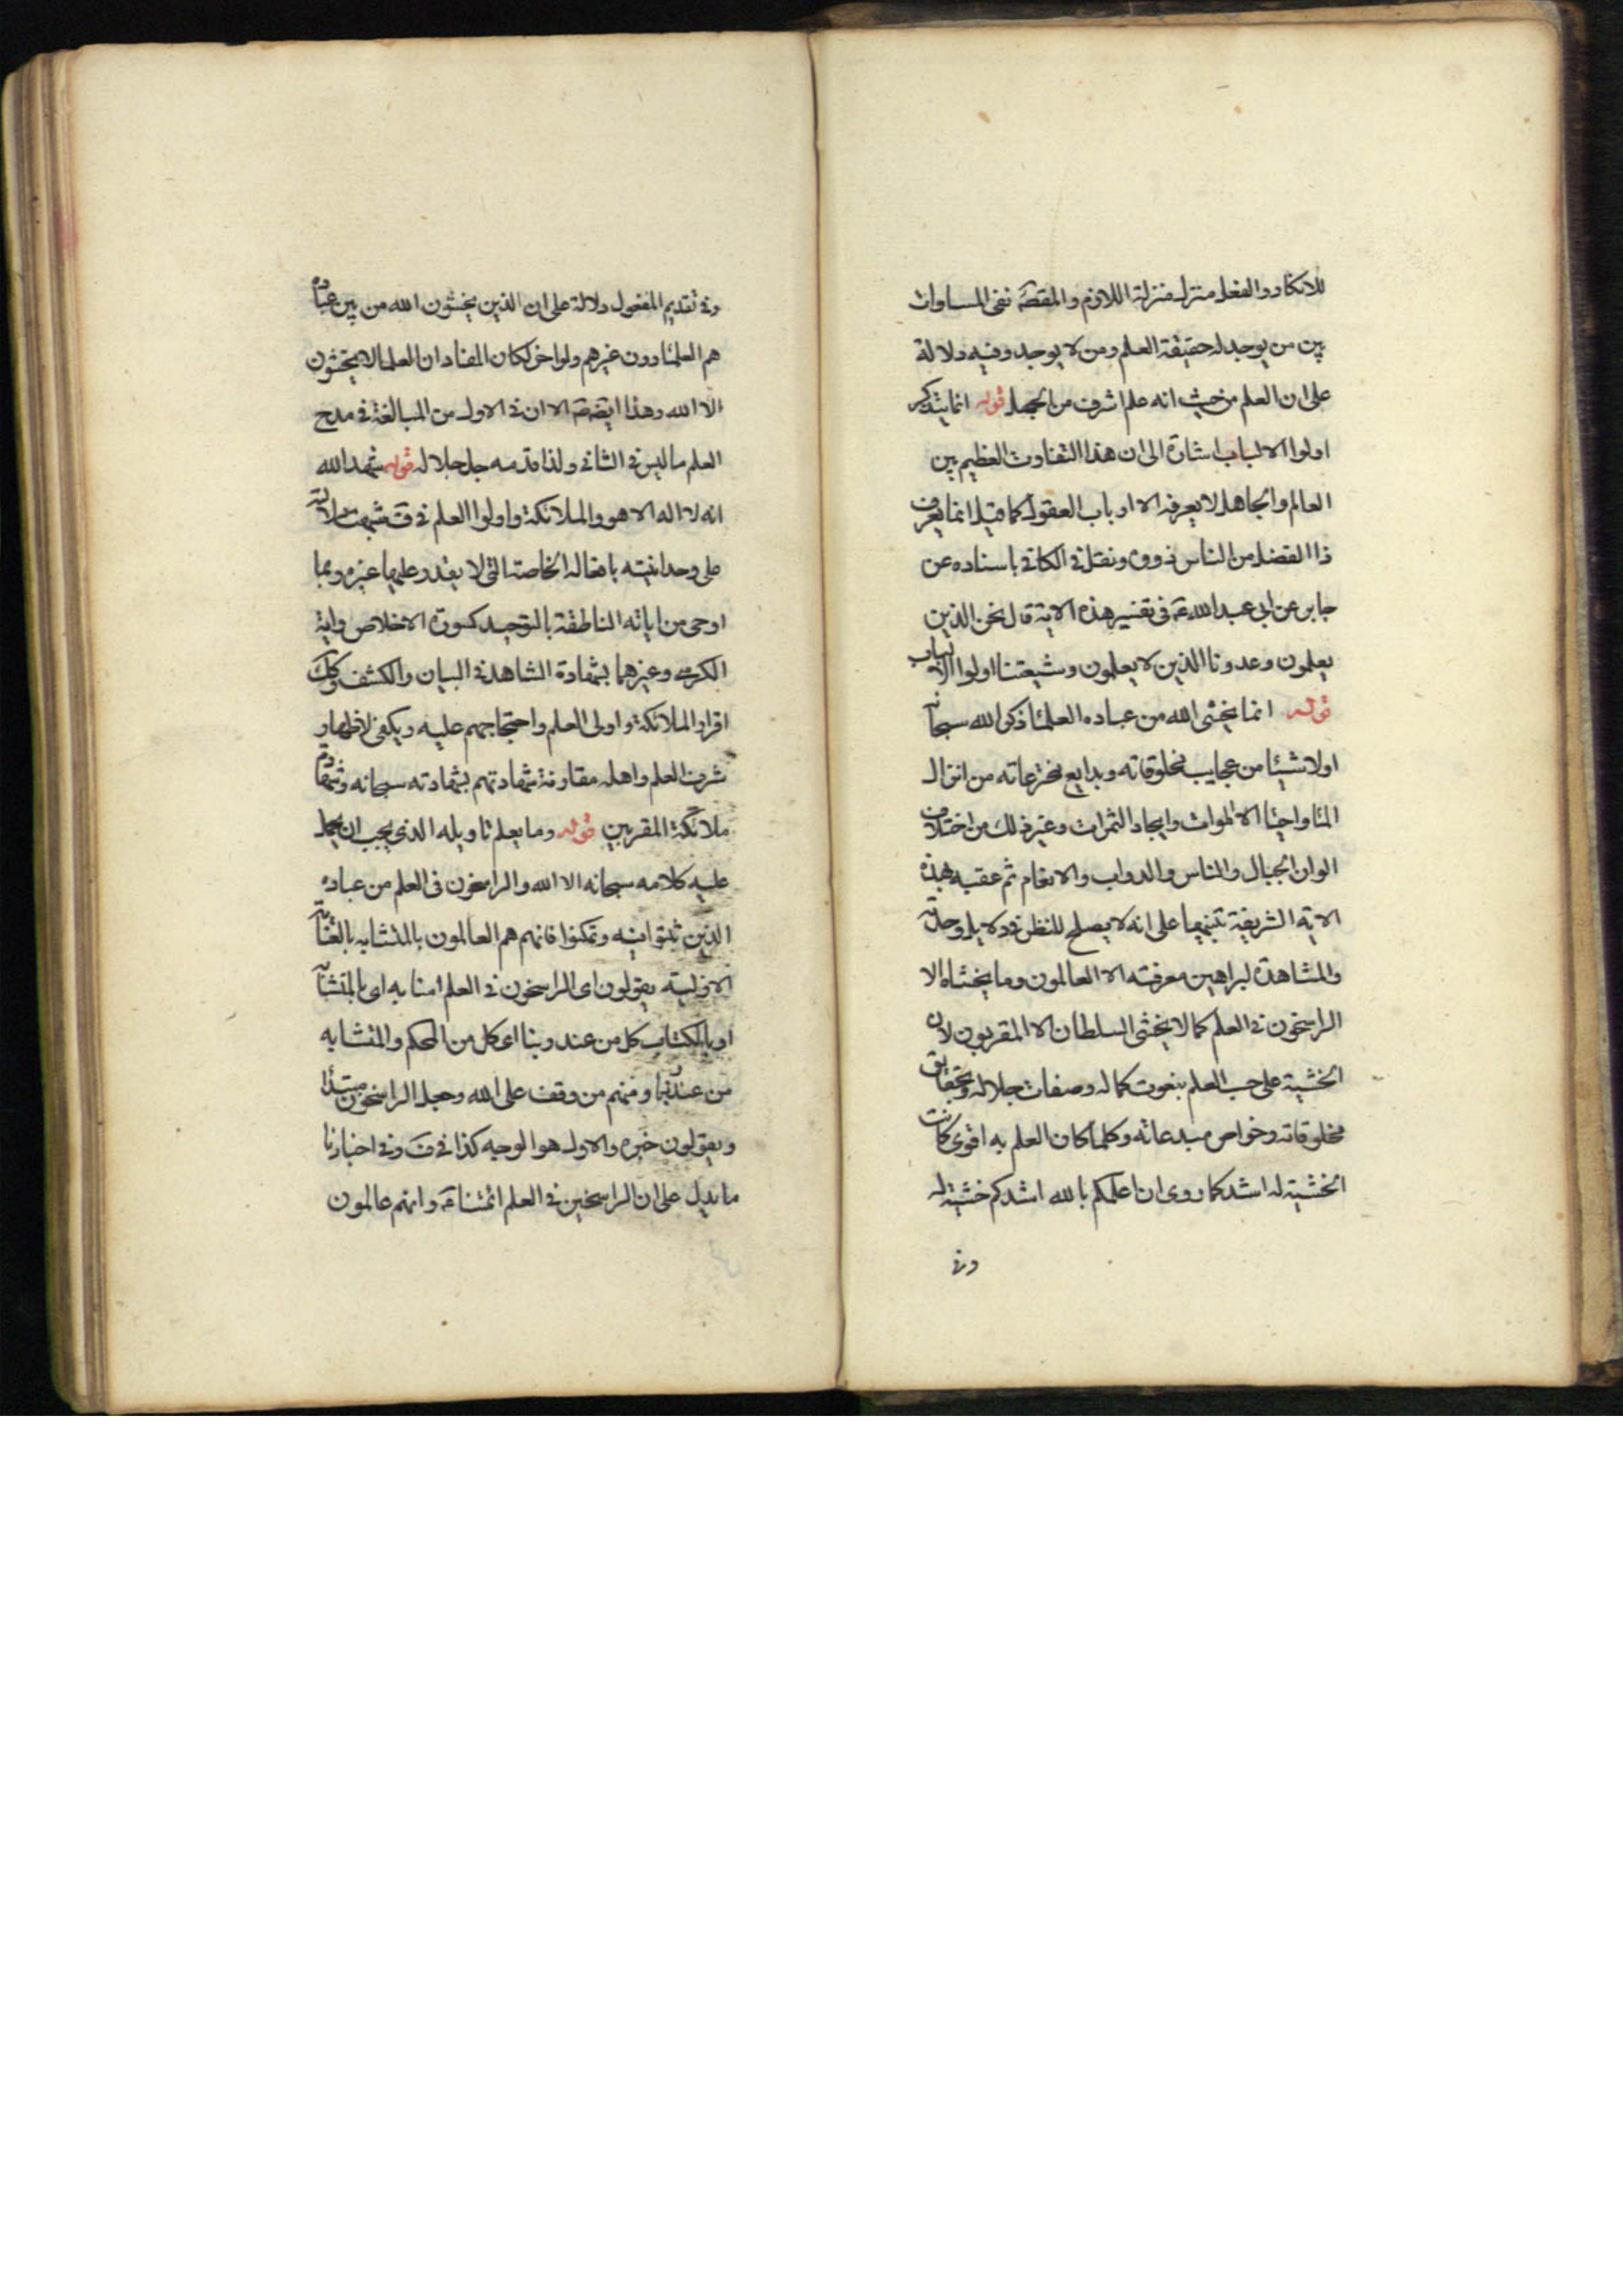 للانكار والفعل منزل منزلة اللازم والمقصَد نفى المساوات
بين من يوجد له حقيقة العلم ومن لا يوجد وفيه دلالة
على ان العلم من حيث انه علم اشرف من الجهل قوله انما يتذكر
اولوا الالباب اشارة الى ان هذا التفاوت العظيم بين
العالم والجاهل لا يعرفه الا ارباب العقول كما قيل انما يعرف
ذا الفضل من الناس ذووه ونقل فى الكافى باسناده عن
جابر عن ابى عبد الله ع فى تفسير هذه الاية قال نحن الذين
يعلمون وعدونا الذين لا يعلمون وشيعتنا اولوا الالباب
قوله انما يخشى الله من عباده العلمٰا ذكر الله سبحانه
اولا شيئا من عجايب مخلوقاته وبدايع مخترعاته من انزال
المٰا واحيٰا الاموات وايجاد الثمرات وغير ذلك من اختلاف
الوان الجبال والناس والدواب والانعام ثم عقبه بهذه
الاية الشريفة تنبيها على انه لا يصلح للنظر فى دلايل وحدته
والمشاهدة لبراهين معرفته الا العالمون وما يخشاه الا
الراسخون فى العلم كما لا يخشى السلطان الا المقربون لان
الخشية على حسب العلم بنعوت كماله وصفات جلاله وبحقايق
مخلوقاته وخواص مبدعاته وكلما كان العلم به اقوى كانت
الخشية له اشد كما روى ان اعلمكم بالله اشدكم خشية له
وفى
وفى تقديم المفعول دلالة على ان الذين يخشون الله من بين عباده
هم العلمٰا دون غيرهم ولو اخر لكان المفاد ان العلما لا يخشون
الا الله وهذا ايضَ صَ الا ان فى الاول من المبالغة فى مدح
العلم ما ليس فى الثانى ولذا قدمه جل جلاله قوله شهد الله
انه لا اله الا هو والملائكة واولوا العلم فى ق شبهت دلالته
على وحدانيته بافعاله الخاصة التى لا يقدر عليها غيره وبما
اوحى من اياته الناطقة بالتوحيد كسورة الاخلاص واية
الكرسى وغيرهما بشهادة الشاهد فى البيان والكشف وكك
اقرار الملائكة واولى العلم واحتجاجهم عليه ويكفى لاظهار
شرف العلم واهله مقارنة شهادتهم بشهادته سبحانه وشهادة
ملائكة المقربين قوله وما يعلم تاويله الذى يجب ان يحمل
عليه كلامه سبحانه الا الله والراسخون فى العلم من عباده
الذين ثبتوا فيه وتمكنوا فانهم هم العالمون بالمتشابه بالعناية
الازلية يقولون اى الراسخون فى العلم امنا به اى بالمتشابه
او بالكتاب كل من عند ربنا اى كل من المحكم والمتشابه
من عند ربنا ومنهم من وقف على الله وجعل الراسخون مبتدأ
ويقولون خبره والاول هو الوجه كذا فى ق وفى اخبارنا
ما يدل على ان الراسخين فى العلم ائمتنا ع وانهم عالمون